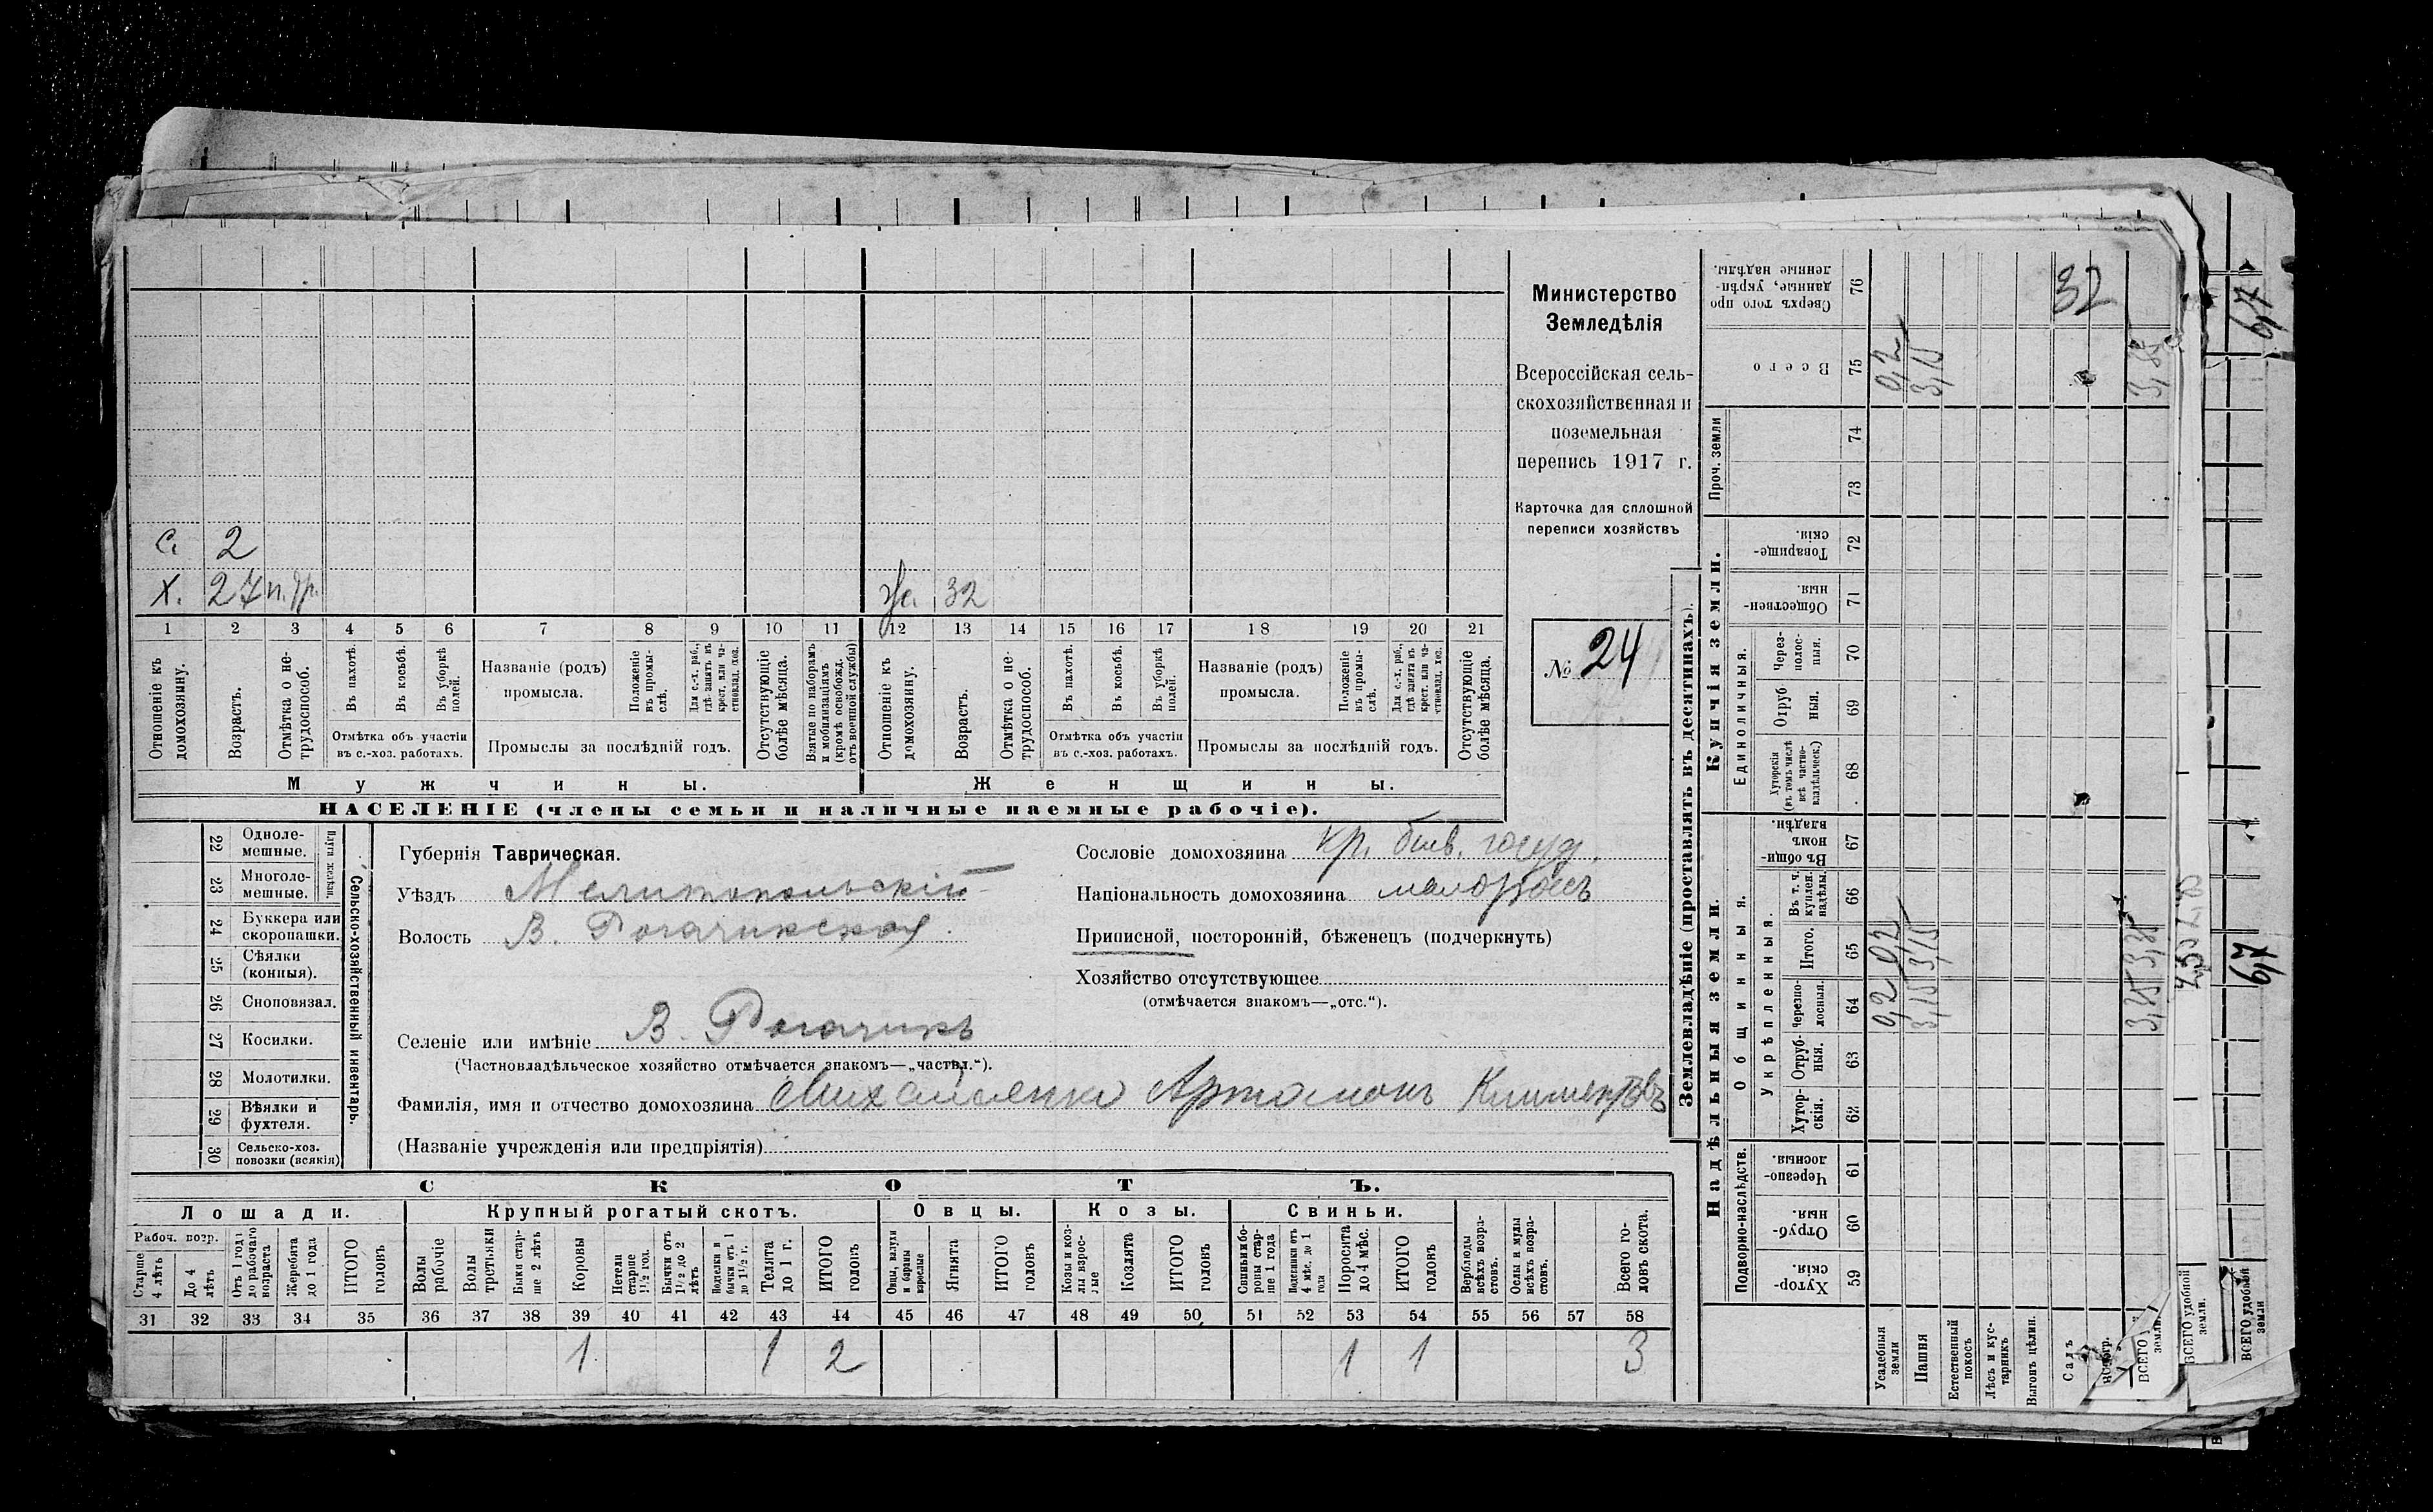 С. 2
Х. 27 п. гр.
Же. 32
1 2 3 4 5 6 7 8 9 10 11 12 13 14 15 16 17 18 19 20 21
Отношеніе къ домохозяину.
Возрастъ.
Отмѣтка о не-
трудоспособ.
Въ пахотѣ.
Въ косьбѣ.
Въ уборкѣ
полей.
Отмѣтка объ участіи
въ с.-хоз. работахъ.
Названіе (родъ)
промысла.
Положеніе
въ промы-
слѣ.
Для с.-х. раб.,
гдѣ занятъ въ
крест. или ча-
стновлад. хоз.
Промыслы за послѣдній годъ.
Отсутствующіе
болѣе мѣсяца.
Взятые по наборамъ
и мобилизаціямъ
(кромѣ освобожд.
отъ военной службы)
Отношеніе къ
домохозяину.
Возрастъ.
Отмѣтка о не-
трудоспособ.
Въ пахотѣ.
Въ косьбѣ.
Въ уборкѣ
полей.
Отмѣтка объ участіи
въ с.-хоз. работахъ.
Названіе (родъ)
промысла.
Положеніе
въ промы-
слѣ.
Для с.-х. раб.,
гдѣ занята въ
крест. или ча-
стновлад. хоз.
Промыслы за послѣдній годъ.
Отсутствующіе
болѣе мѣсяца.
Мужчины.
Женщины.
НАСЕЛЕНІЕ (члены семьи и наличные наемные рабочіе).
Министерство
Земледѣлія
Всероссійская сель-
скохозяйственная и
поземельная
перепись 1917 г.
Карточка для сплошной
переписи хозяйствъ
№ 24
22 Одноле-
мешные.
23 Многоле-
мешные.
24 Буккера или
скоропашки.
25 Сѣялки
(конныя).
26 Сноповязал.
27 Косилки.
28 Молотилки.
29 Вѣялки и
фухтеля.
30 Сельско-хоз.
повозки (всякія)
Сельско-хозяйственный инвентарь.
Губернія Таврическая.
Уѣздъ Мелитопольскій
Волость В. Рогачикская
Селеніе или имѣніе В. Рогачикъ
(Частновладѣльческое хозяйство отмѣчается знакомъ—„частвл.“).
Фамилія, имя и отчество домохозяина Михайленко Артамонъ Климентовъ
(Названіе учрежденія или предпріятія)
Сословіе домохозяина кр. быв. госуд.
Національность домохозяина малороссъ
Приписной, посторонній, бѣженецъ (подчеркнуть)
Хозяйство отсутствующее
(отмѣчается знакомъ—„отс.“).
СКОТЪ.
Лошади. Крупный рогатый скотъ. Овцы. Козы. Свиньи.
Рабоч. возр.
Старше
4 лѣтъ
До 4
лѣтъ
Отъ 1 года
до рабочаго
возраста
Жеребята
до 1 года
ИТОГО
головъ
Волы
рабочіе
Волы
третьяки
Быки стар-
ше 2 лѣтъ
Коровы
Нетели
старше
1½ год.
Бычки отъ
1½ до 2
лѣтъ
Подтелки и
бычки отъ 1
до 1½ г.
Телята
до 1 г.
ИТОГО
головъ
Овцы, валухи
и бараны
взрослые
Ягнята
ИТОГО
головъ
Козы и коз-
лы взрос-
лые
Козлята
ИТОГО
головъ
Свиньи и бо-
ровы стар-
ше 1 года
Подсвинки отъ
4 мѣс. до 1
года
Поросята
до 4 мѣс.
ИТОГО
головъ
Верблюды
всѣхъ возра-
стовъ.
Ослы и мулы
всѣхъ возра-
стовъ.
Всего го-
ловъ скота.
31 32 33 34 35 36 37 38 39 40 41 42 43 44 45 46 47 48 49 50 51 52 53 54 55 56 57 58
1 1 2 1 1 3
Землевладѣніе (проставлять въ десятинахъ).
Купчія земли.
Надѣльныя земли.
Сверхъ того про
данные, укрѣп-
ленные надѣлы.
76
32
Всего
75
0,2
3,15
3,35
Проч. земли
74
73
Товарище-
скія.
72
Обществен-
ныя.
71
Единоличныя.
Через-
полос-
ныя.
70
Отруб
ныя.
69
Хуторскія
(въ томъ числѣ
всѣ частно-
владѣльческ.)
68
Общинныя.
Въ общи-
номъ
владѣн.
67
Укрѣпленныя.
Въ т. ч.
куплен.
надѣлы.
66
Итого.
65
0,2
3,15
3,35
Черезпо-
лосныя.
64
0,2
3,15
3,35
Отруб-
ныя.
63
Хутор-
скія.
62
Подворно-наслѣдств.
Черезпо-
лосныя.
61
Отруб-
ныя.
60
Хутор-
скія.
59
Усадебныя
земли
Пашня
Естественный
покосъ
Лѣсъ и кус-
тарникъ
Выгонъ цѣлин.
Садъ
ВСЕГО
земли.
ВСЕГО удобной
земли.
ВСЕГО удобной
земли
67
67